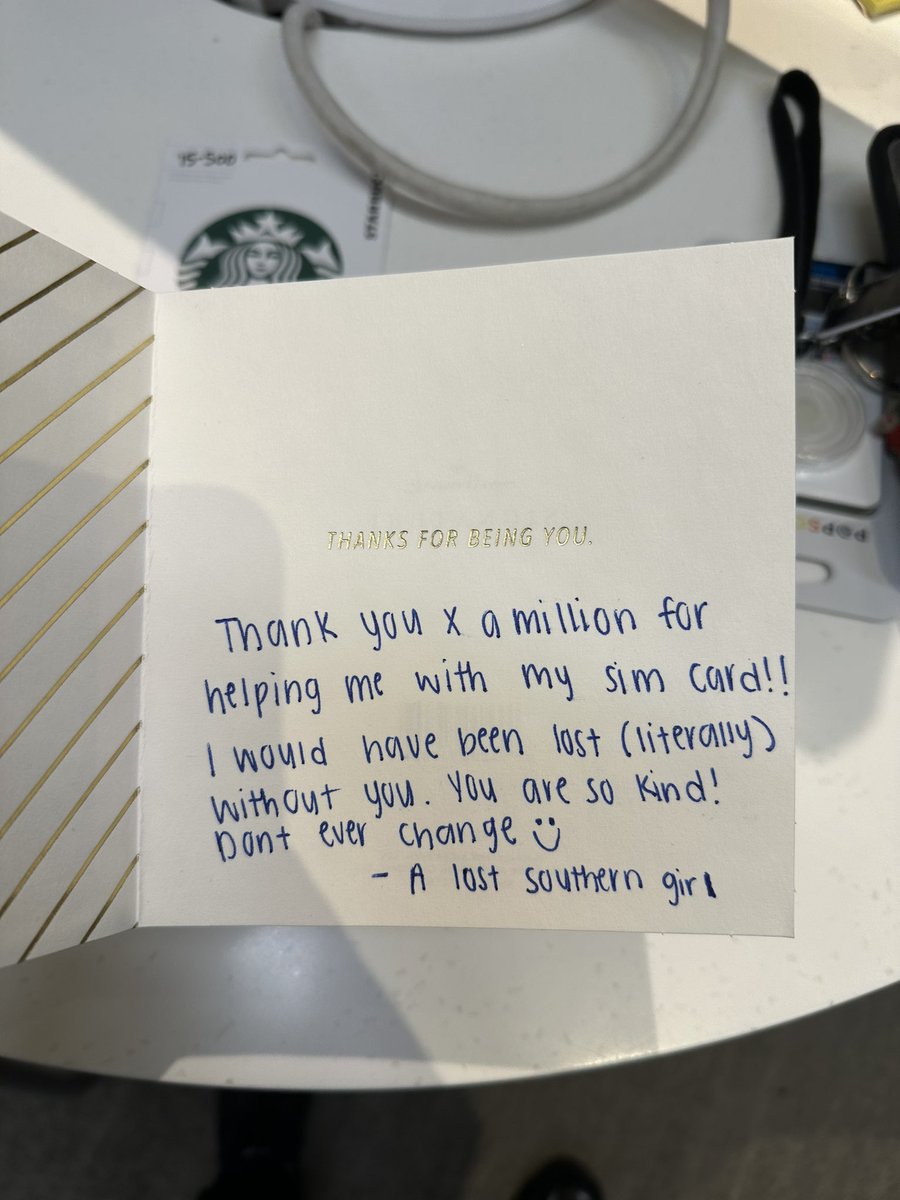 15-500
THANKS FOR BEING YOU.
Thank you x a million for
helping me with my sim card!!
I would have been lost (literally)
without you. You are so kind!
Dont ever change :)
- A lost southern girl